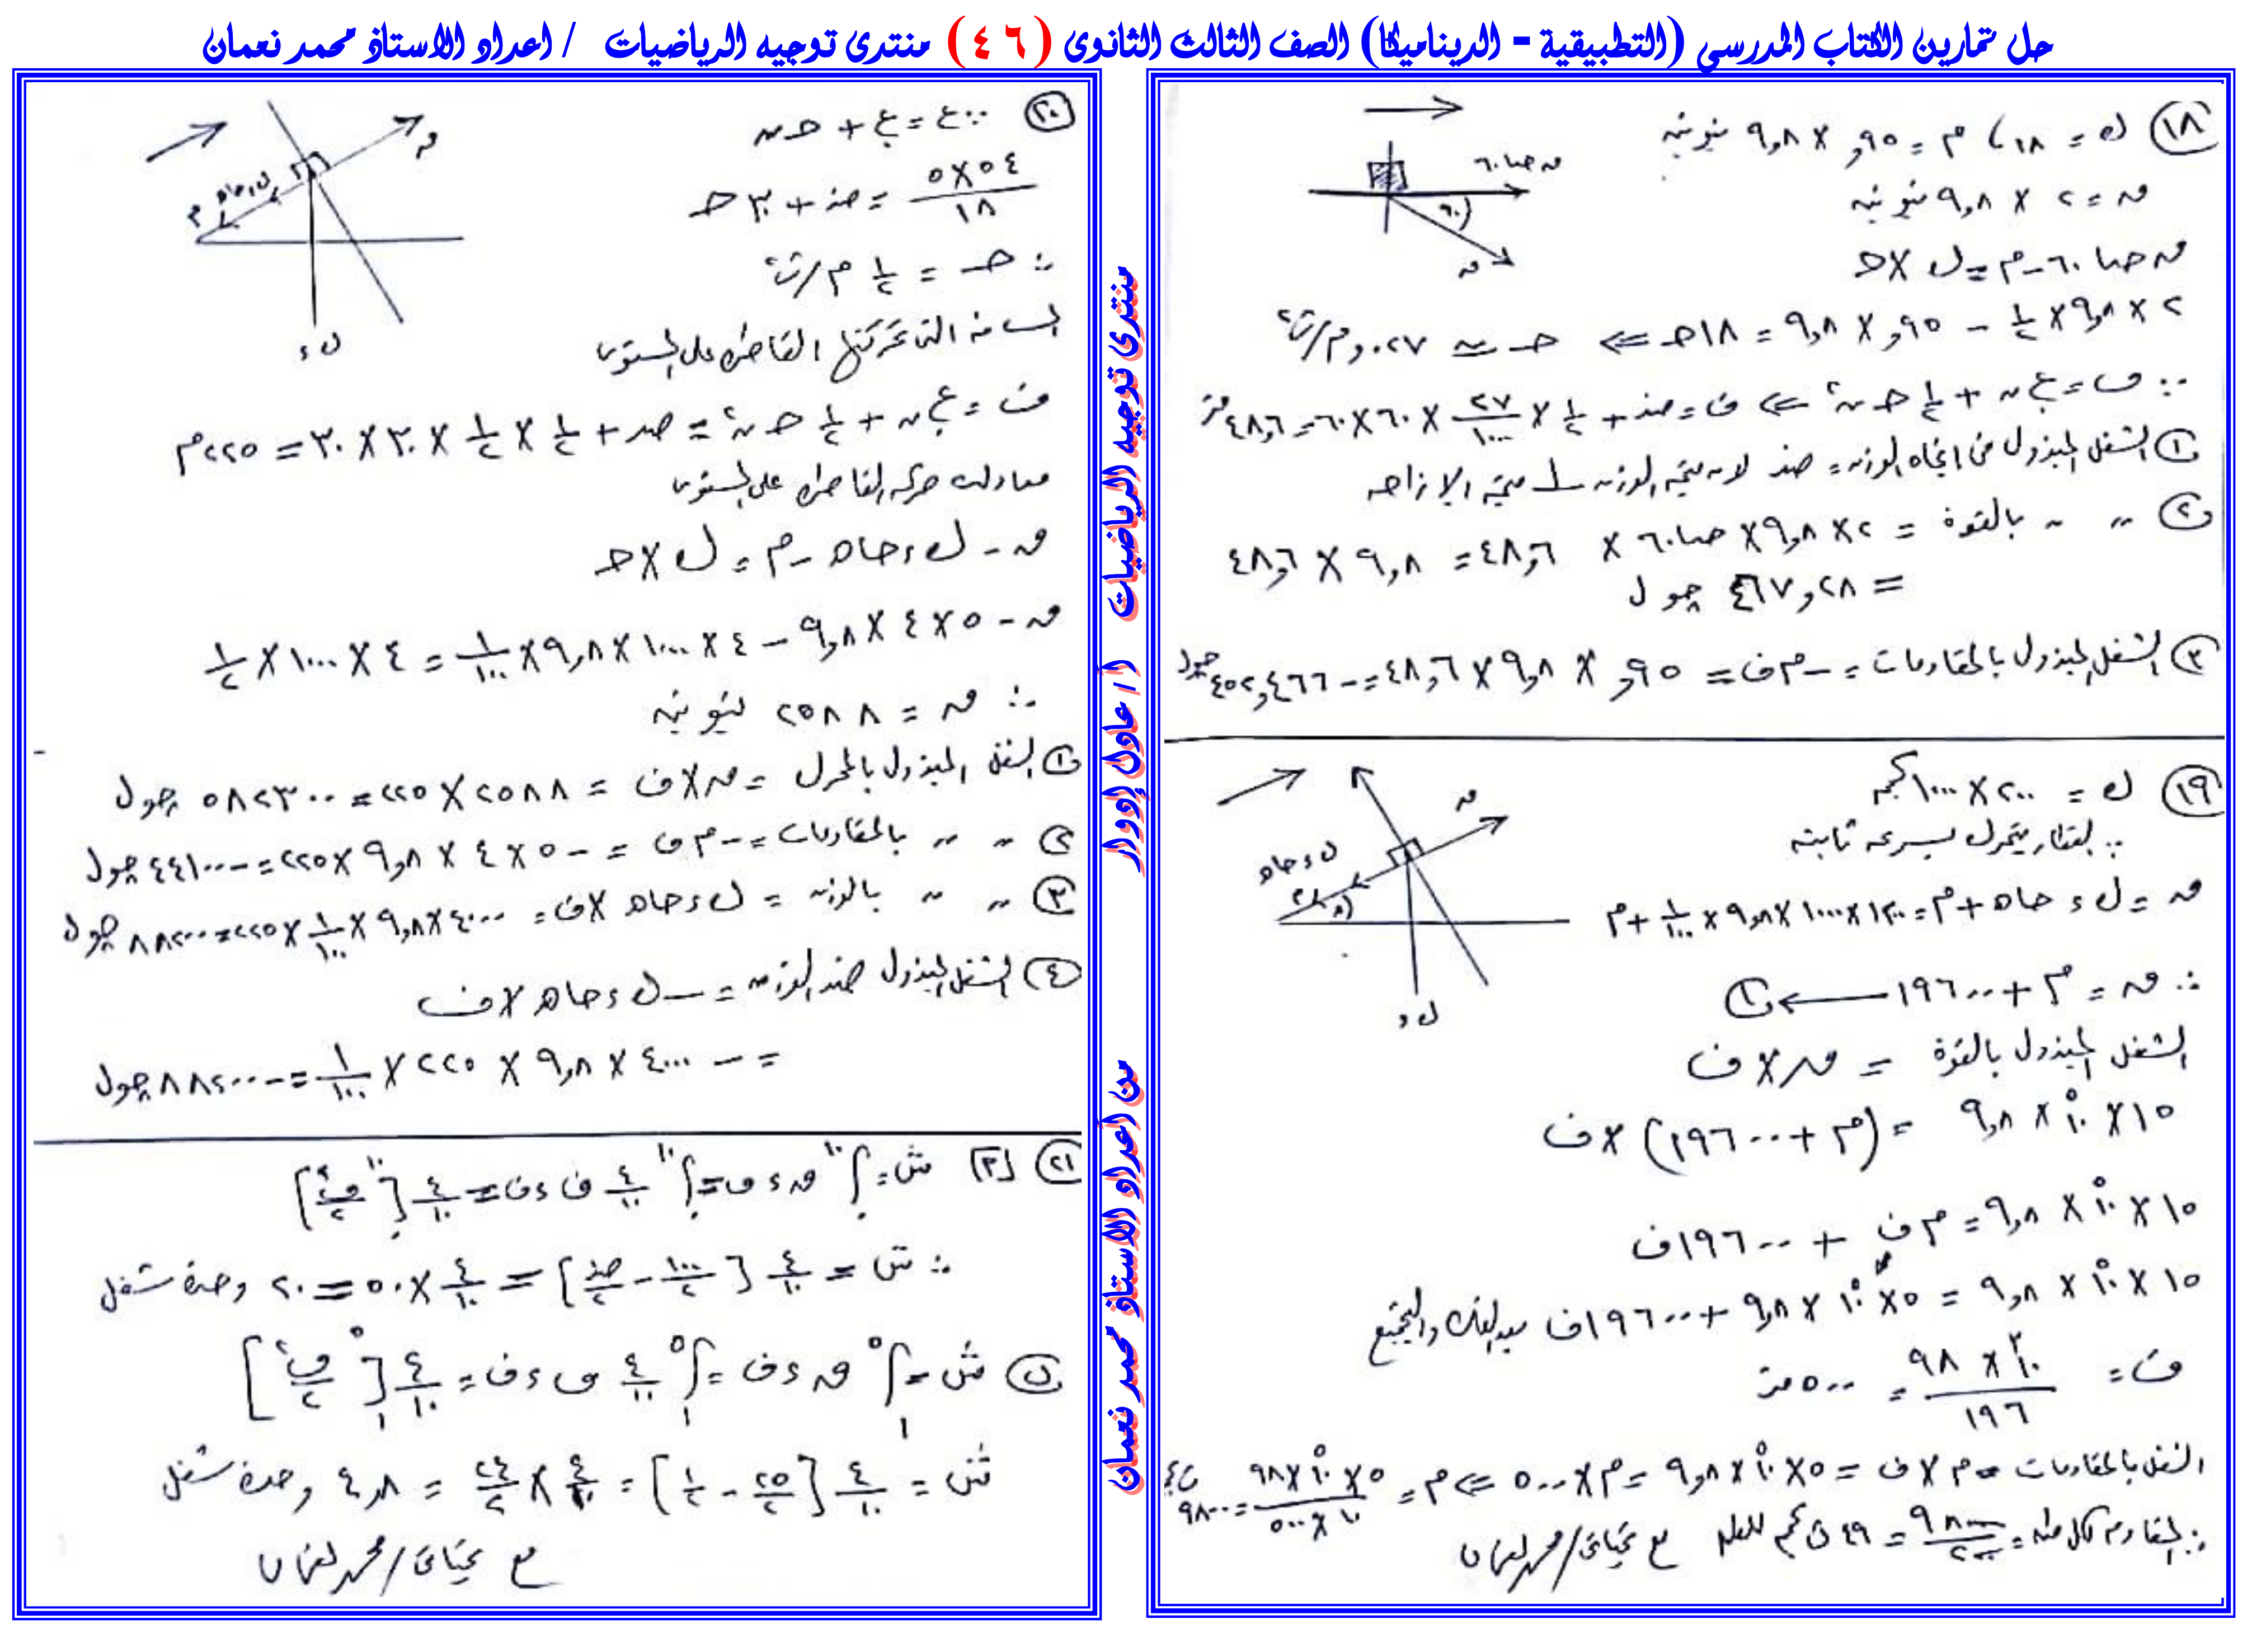 حل تمارين الكتاب المدرسي (التطبيقية - الديناميكا) الصف الثالث الثانوى (٤٦) منتدى توجيه الرياضيات / اعداد الاستاذ محمد نعمان
١٨ ك = ١٨ ، م = ٩٥, × ٩,٨ نيوتن
ق = ٢ × ٩,٨ نيوتن
ق حتا ٦٠ - م = ك × حـ
٢ × ٩,٨ × ١/٢ - ٩٥, × ٩,٨ = ١٨ حـ ⇐ حـ ≃ ٠٢٧,م/ث٢
∵ ف = ع. ن + ١/٢ حـ ن٢ ⇐ ف = صفر + ١/٢ × ٢٧/١٠٠٠ × ٦٠ × ٦٠ = ٤٨,٦ متر
١ الشغل المبذول من اتجاه الوزن = صفر لان متجه الوزن ⊥ متجه الازاحه
٢ " " بالقوة = ٢ × ٩,٨ × حتا ٦٠ × ٤٨,٦ = ٩,٨ × ٤٨,٦
= ٤٦٧,٢٨ جول
٣ الشغل المبذول بالمقاومات = - م ف = ٩٥, × ٩,٨ × ٤٨,٦ = - ٤٥٢,٤٦٦ جول
ق حتا ٦٠
٦٠
ق
١٩ ك = ٢٠٠ × ١٠٠٠ كجم
∵ القطار يتحرك بسرعه ثابته
ق = ك ء حا هـ + م = ٢٠٠ × ١٠٠٠ × ٩,٨ × ١/١٠٠ + م
∴ ق = م + ١٩٦٠٠ ← ١
الشغل المبذول بالقوة = ق × ف
١٥ × ١٠^٥ × ٩,٨ = (م + ١٩٦٠٠) × ف
١٥ × ١٠^٥ × ٩,٨ = م ف + ١٩٦٠٠ ف
١٥ × ١٠^٥ × ٩,٨ = ٥ × ١٠^٥ × ٩,٨ + ١٩٦٠٠ ف بعد الفك والتجميع
ف = ١٠^٣ × ٩٨ / ١٩٦ = ٥٠٠ متر
الشغل بالمقاومات = م × ف = ٥ × ١٠^٥ × ٩,٨ = م × ٥٠٠ ⇐ م = ٥ × ١٠^٥ × ٩٨ / ١٠ × ٥٠٠ = ٩٨٠٠
∴ المقاوم لكل طن = ٩٨٠٠/٢٠٠ = ٤٩ ث كجم للطن مع تحياتى / محمد نعمان
ق
ك ء حا هـ
ك ء
٢٠ ∵ ع = ع. + حـ ن
٥٤ × ٥ / ١٨ = صفر + ٣٠ حـ
∴ حـ = ١/٢ م/ث٢
المسافه التى تحركتها القاطره على المستوى
ف = ع. ن + ١/٢ حـ ن٢ = صفر + ١/٢ × ١/٢ × ٣٠ × ٣٠ = ٢٢٥ م
معادلة حركه القاطره على المستوى
ق - ك ء حا هـ - م = ك × حـ
ق - ٥ × ٤ × ٩,٨ - ٤ × ١٠٠٠ × ٩,٨ × ١/١٠٠ = ٤ × ١٠٠٠ × ١/٢
∴ ق = ٢٥٨٨ نيوتن
١ الشغل المبذول بالمحرك = ق × ف = ٢٥٨٨ × ٢٢٥ = ٥٨٢٣٠٠ جول
٢ " " بالمقاومات = - م ف = - ٥ × ٤ × ٩,٨ × ٢٢٥ = - ٤٤١٠٠ جول
٣ " " بالوزن = ك ء حا هـ × ف = ٤٠٠٠ × ٩,٨ × ١/١٠٠ × ٢٢٥ = ٨٨٢٠٠ جول
٤ الشغل المبذول ضد الوزن = - ك ء حا هـ × ف
= - ٤٠٠٠ × ٩,٨ × ٢٢٥ × ١/١٠٠ = - ٨٨٢٠٠ جول
ق
ك ء حا هـ
م
ك ء
٢١ [أ] ش = ∫.^١٠ ق ء ف = ∫.^١٠ ٤/١٠ ف ء ف = ٤/١٠ [ف٢/٢].^١٠
∴ ش = ٤/١٠ [١٠٠/٢ - صفر/٢] = ٤/١٠ × ٥٠ = ٢٠ وحدة شغل
ب ش = ∫١^٥ ق ء ف = ∫١^٥ ٤/١٠ ف ء ف = ٤/١٠ [ف٢/٢]١^٥
ش = ٤/١٠ [٢٥/٢ - ١/٢] = ٤/١٠ × ٢٤/٢ = ٤,٨ وحدة شغل
مع تحياتى / محمد نعمان
منتدى توجيه الرياضيات
أ / عادل إدوار
من اعداد الاستاذ محمد نعمان